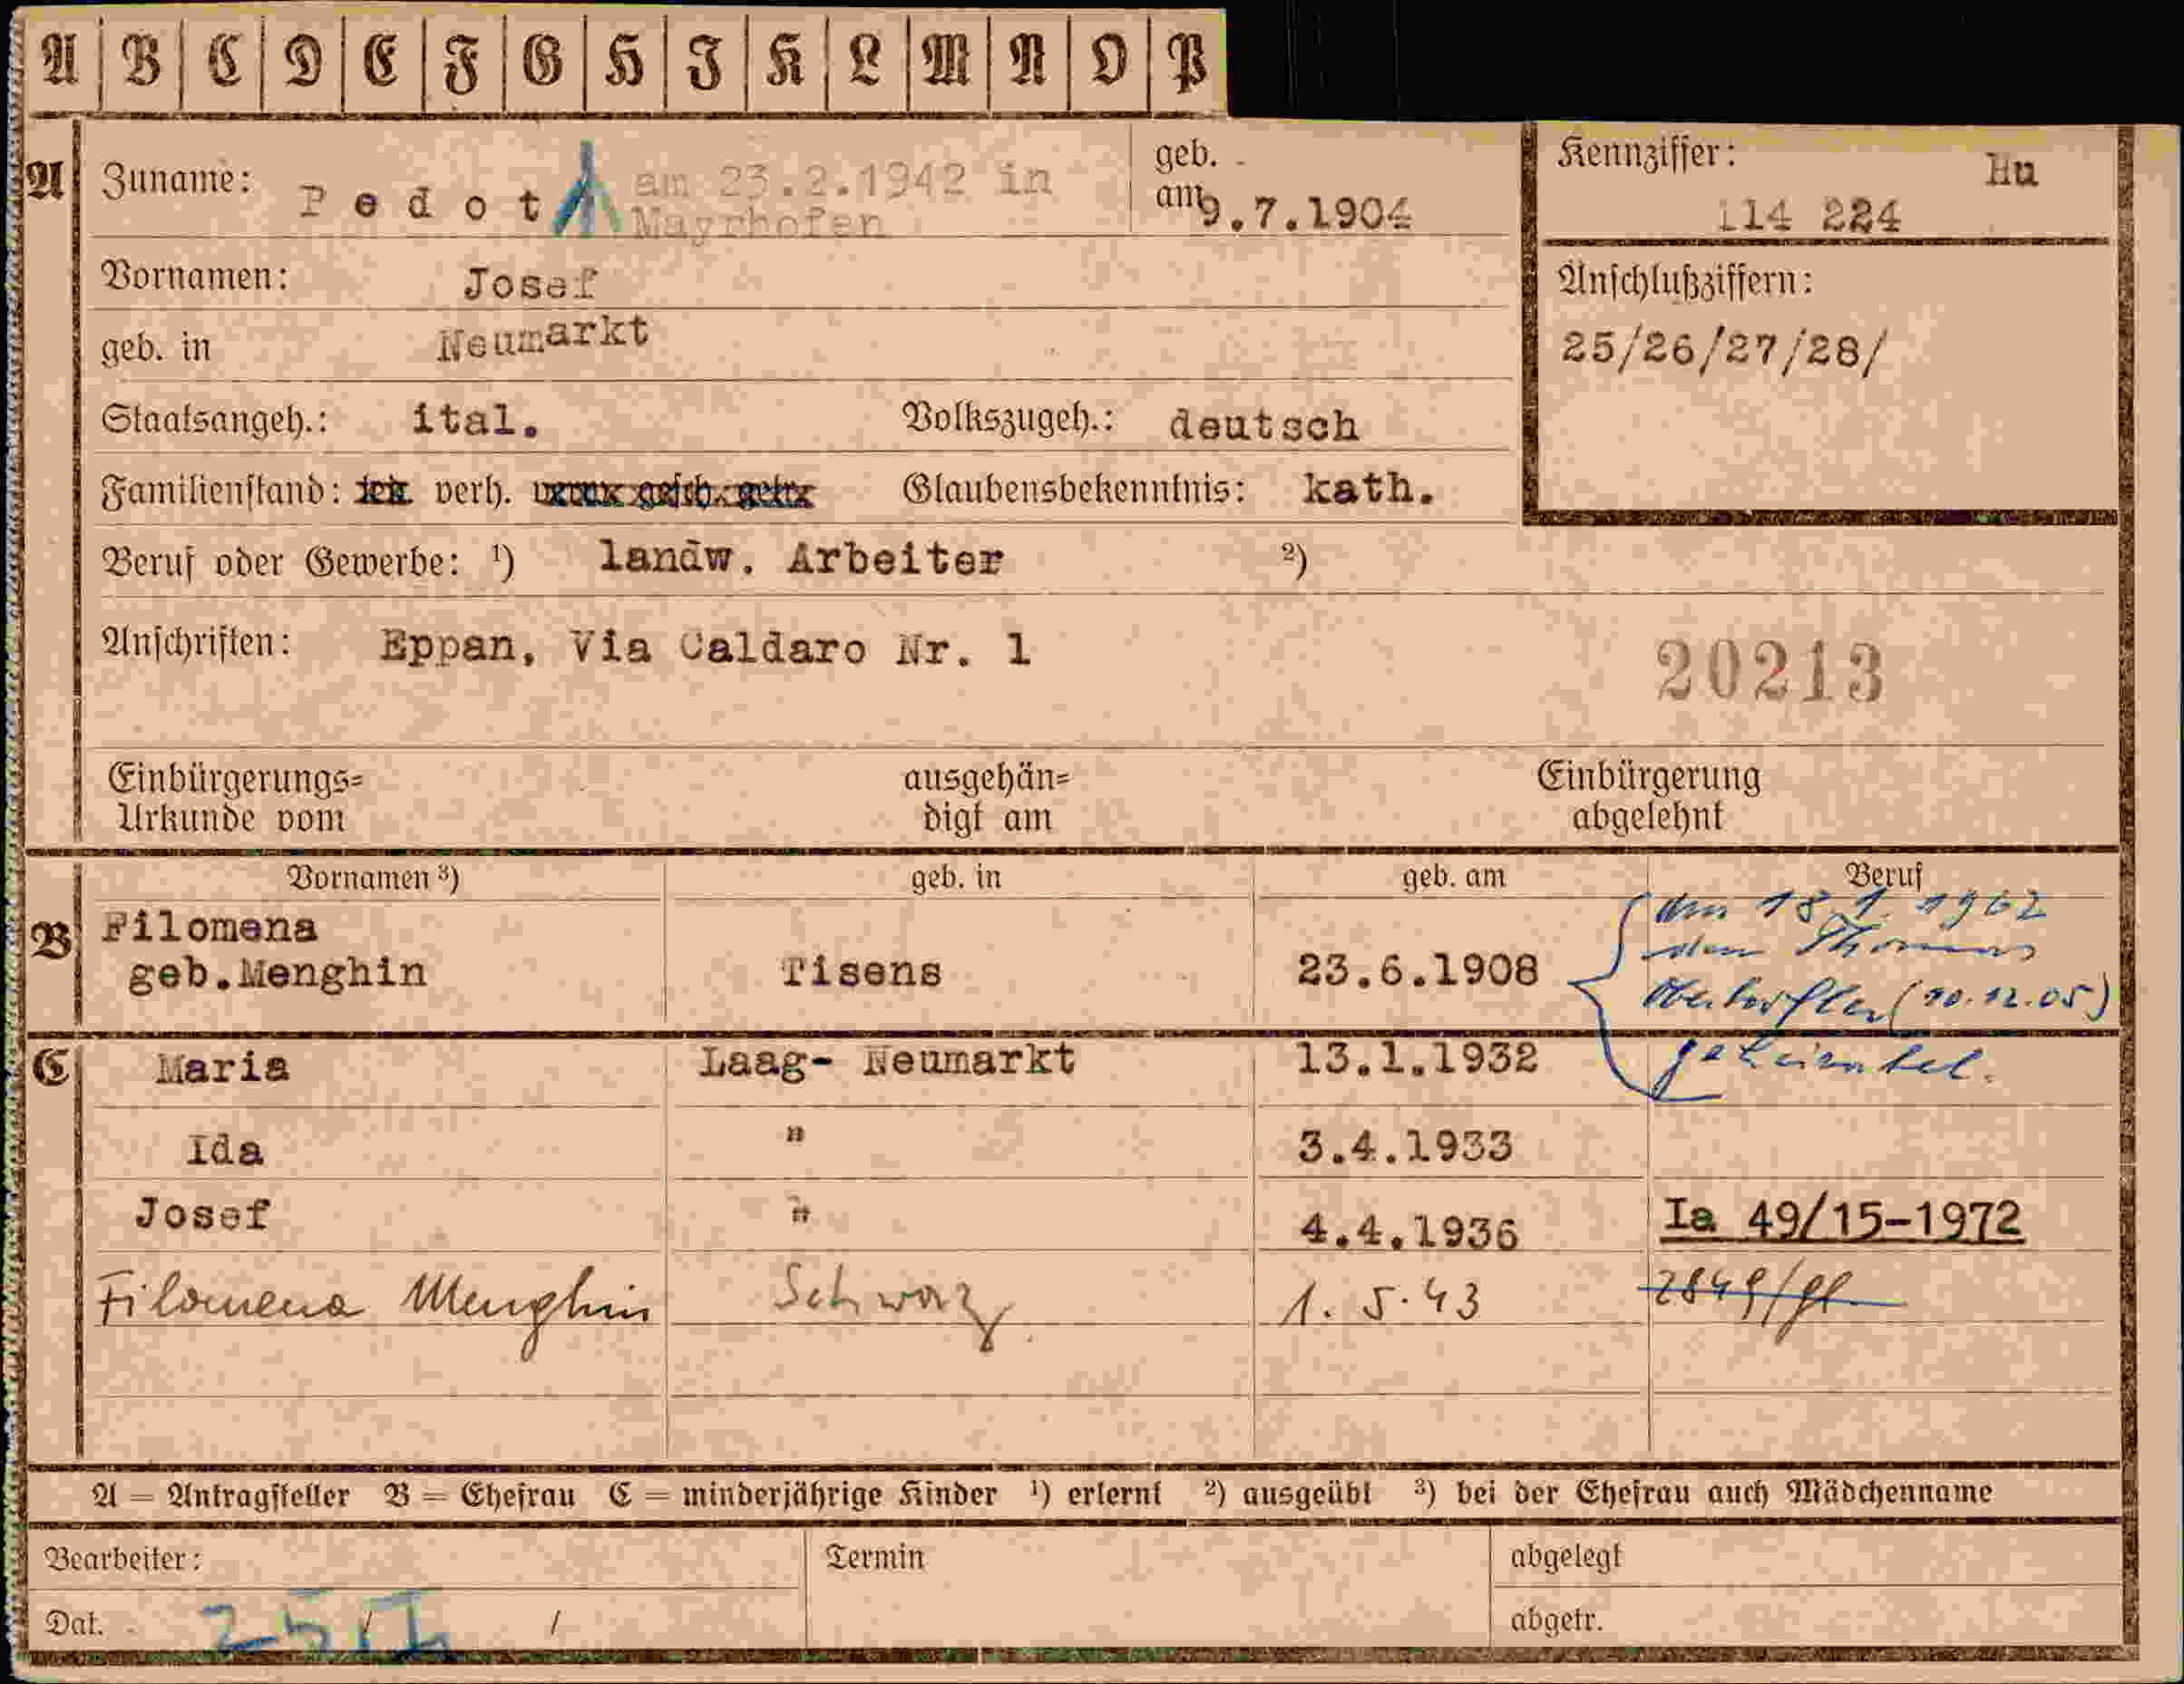 A B C D E F G H I K L M N O P
A Zuname: Pedot am 23.2.1942 in Mayrhofen geb. am 9.7.1904
Kennziffer: Hu
114 224
Vornamen: Josef
Anschlußziffern:
25/26/27/28/
geb. in Neumarkt
Staatsangeh.: ital. Volkszugeh.: deutsch
Familienstand: led. verh. verw. gesch. getr. Glaubensbekenntnis: kath.
Beruf oder Gewerbe: ¹) landw. Arbeiter ²)
Anschriften: Eppan, Via Caldaro Nr. 1
20213
Einbürgerungs= ausgehän= Einbürgerung
Urkunde vom digt am abgelehnt
Vornamen ³) geb. in geb. am Beruf
B Filomena
geb.Menghin Tisens 23.6.1908
am 18.1.1962
den Thomas
(10.12.05)
geheiratet.
C Maria Laag- Neumarkt 13.1.1932
Ida " 3.4.1933
Josef " 4.4.1936 Ia 49/15-1972
Filomena Menghin Schwaz 1.5.43
A = Antragsteller B = Ehefrau C = minderjährige Kinder ¹) erlernt ²) ausgeübt ³) bei der Ehefrau auch Mädchenname
Bearbeiter: Termin abgelegt
Dat. / / abgetr.